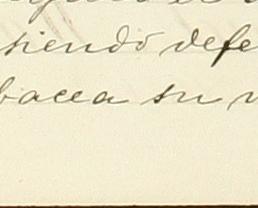 siendo defe
bacea su